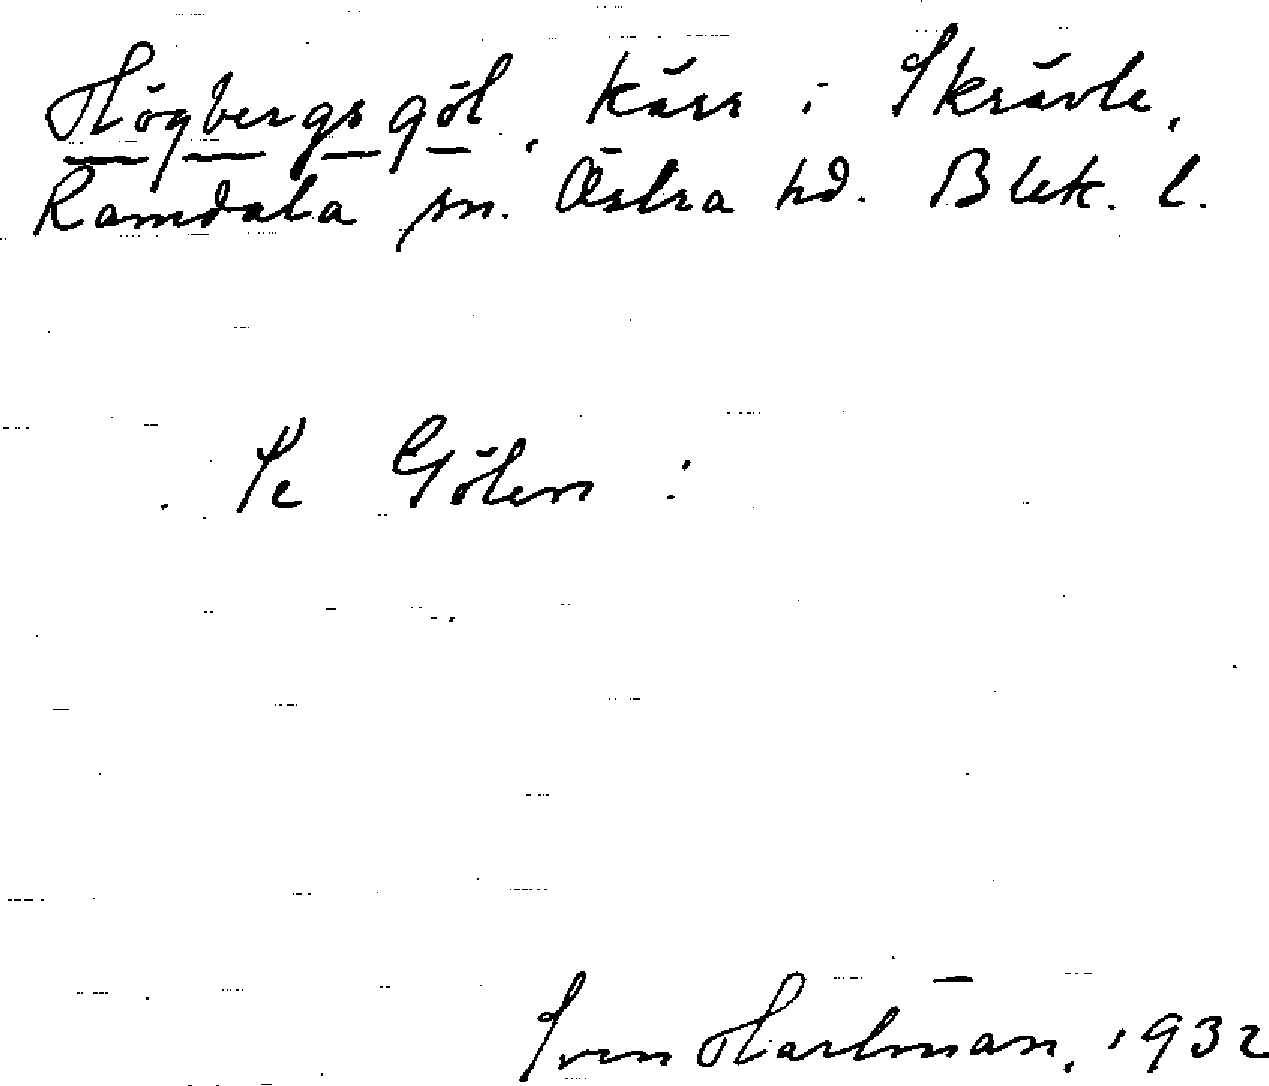 Högbergsgöl, kärr i Skrävle,
Ramdala sn. Östra hd. Blek. l.
Se Gölen !
Sven Hartman, 1932